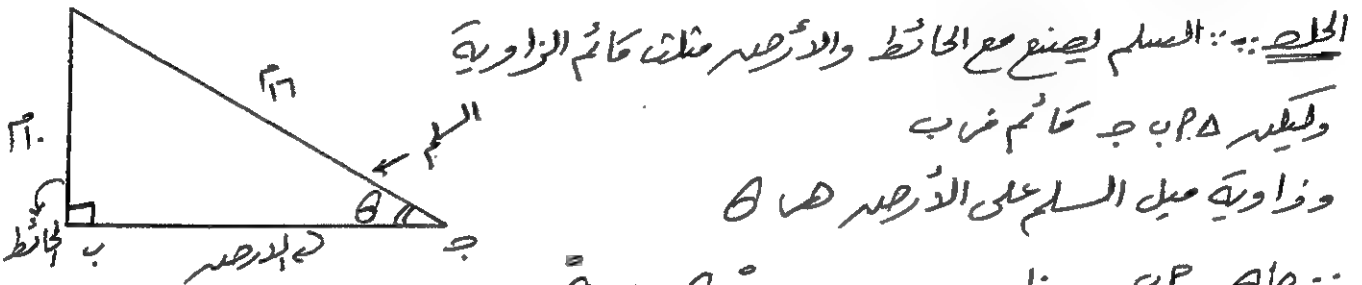 الحل :- ∵ السلم يصنع مع الحائط والأرض مثلث قائم الزاوية
وليكن △ أ ب جـ قائم في ب
وزاوية ميل السلم على الأرض هي θ
١٦م
السلم
١٠م
θ
الحائط
ب
الأرض
جـ